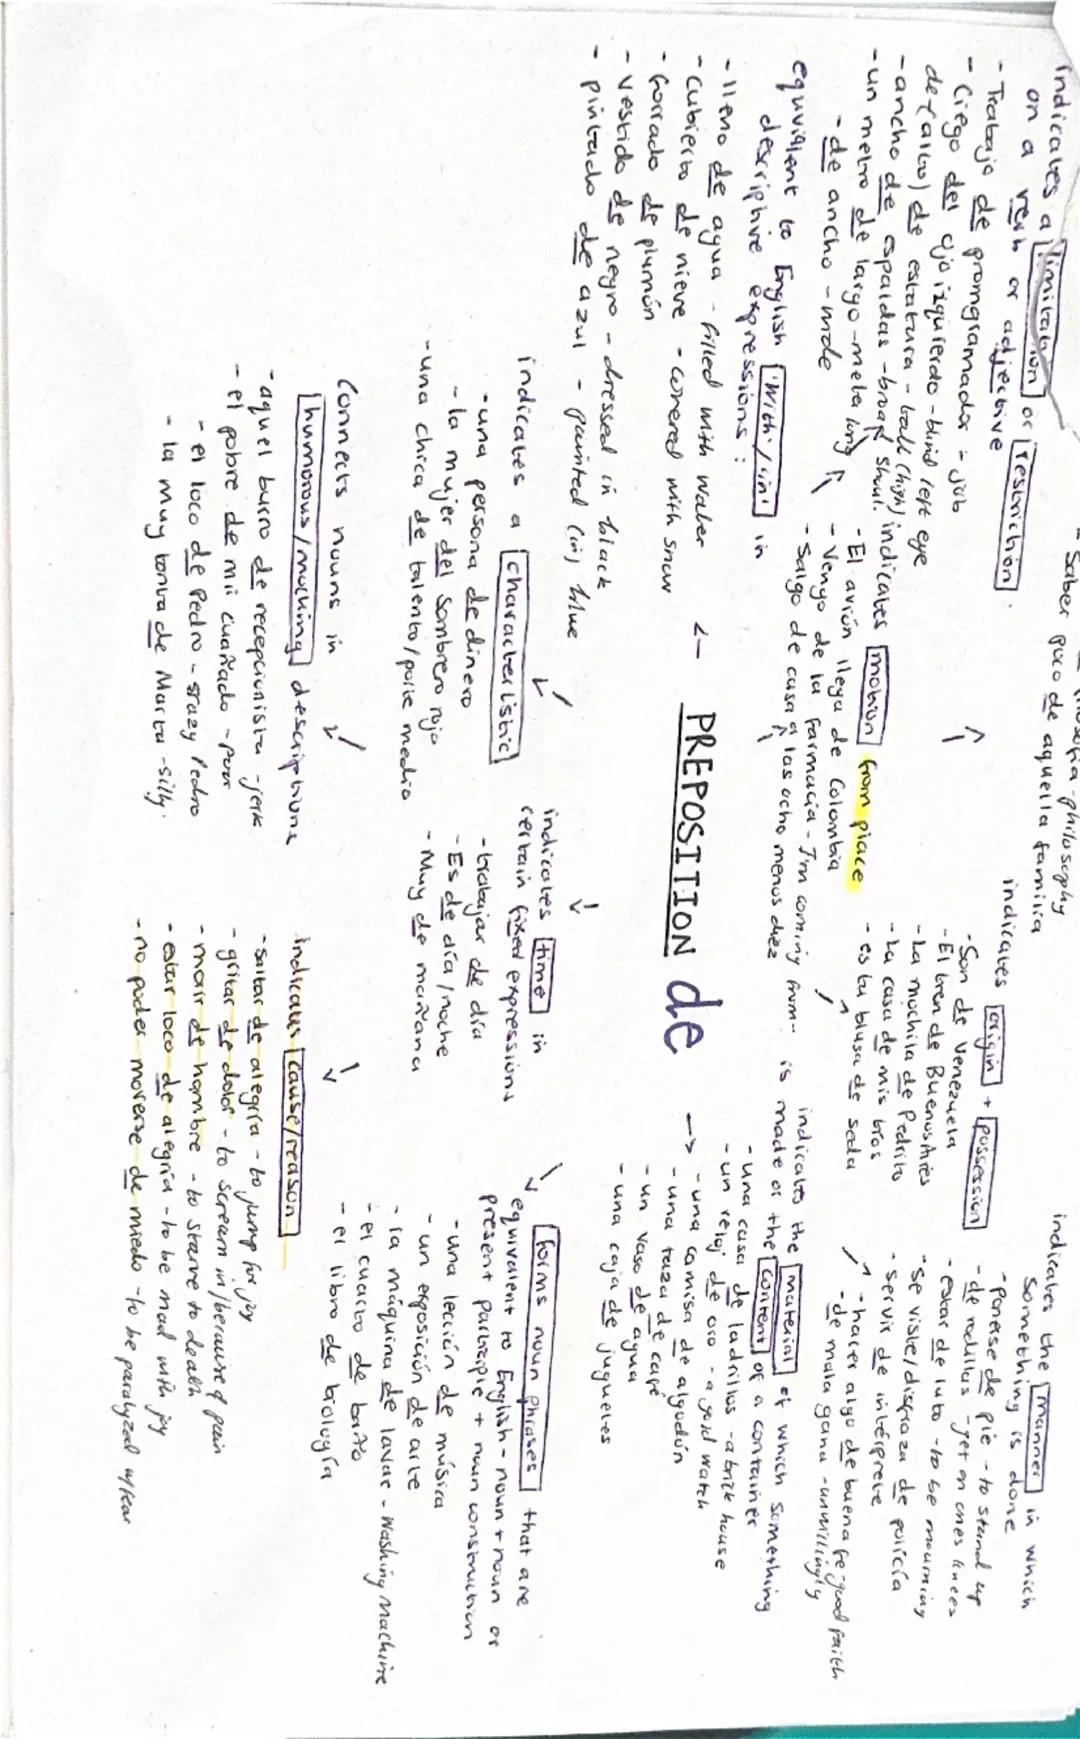 - Saber poco de aquella familia
indicates a limitation or restriction
on a verb or adjective
- Trabajo de promgramador - job
- Ciego del ojo izquierdo - blind left eye
de (alto) de estatura - tall (high)
- ancho de espaldas - broad shoul.
- un metro de largo - metre long
- de ancho - wide
indicates motion from place
- El avión llega de Colombia
- Vengo de la farmacia - I'm coming from..
- Salgo de casa a las ocho menos diez
indicates origin + possession
- Son de Venezuela
- El tren de Buenos Aires
- La mochila de Pedrito
- La casa de mis tíos
- es tu blusa de seda
indicates the manner in which
something is done
- ponerse de pie - to stand up
- de rodillas - get on ones knees
- estar de luto - to be mourning
- se viste/disfraza de policía
- servir de intérprete
- hacer algo de buena fe - good faith
- de mala gana - unwillingly
equivilent to English 'with'/'in' in
descriptive expressions:
- lleno de agua - filled with water
- cubierto de nieve - covered with snow
- forrado de plumón
- vestido de negro - dressed in black
- pintado de azul - painted (in) blue
PREPOSITION de
indicates the material of which something
is made or the content of a container
- una casa de ladrillos - a brick house
- un reloj de oro - a gold watch
- una camisa de algodón
- una taza de café
- un vaso de agua
- una caja de juguetes
indicates a characteristic
- una persona de dinero
- la mujer del sombrero rojo
- una chica de talento/porte medio
indicates time in
certain fixed expressions
- trabajar de día
- Es de día/noche
- Muy de mañana
forms noun phrases that are
equivalent to English - noun + noun or
present participle + noun construction
- una lección de música
- un exposición de arte
- la máquina de lavar - washing machine
- el cuarto de baño
- el libro de biología
connects nouns in
humorous/mocking descriptions
- aquel burro de recepcionista - jerk
- el pobre de mi cuañado - poor
- el loco de Pedro - crazy Pedro
- la muy tonta de Marta - silly.
indicates cause/reason
- saltar de alegría - to jump for joy
- gritar de dolor - to scream in/because of pain
- morir de hambre - to starve to death
- estar loco de alegría - to be mad with joy
- no poder moverse de miedo - to be paralyzed w/fear